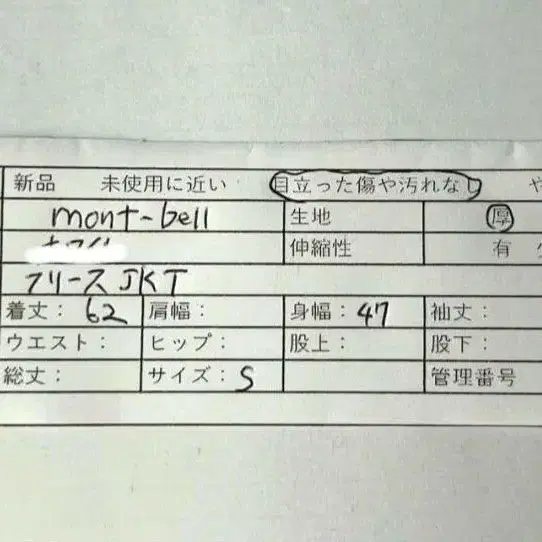 新品 未使用に近い 目立った傷や汚れなし や
mont-bell 生地 厚
伸縮性 有
フリース JKT
着丈： 62 肩幅： 身幅： 47 袖丈：
ウエスト： ヒップ： 股上： 股下：
総丈： サイズ： S 管理番号